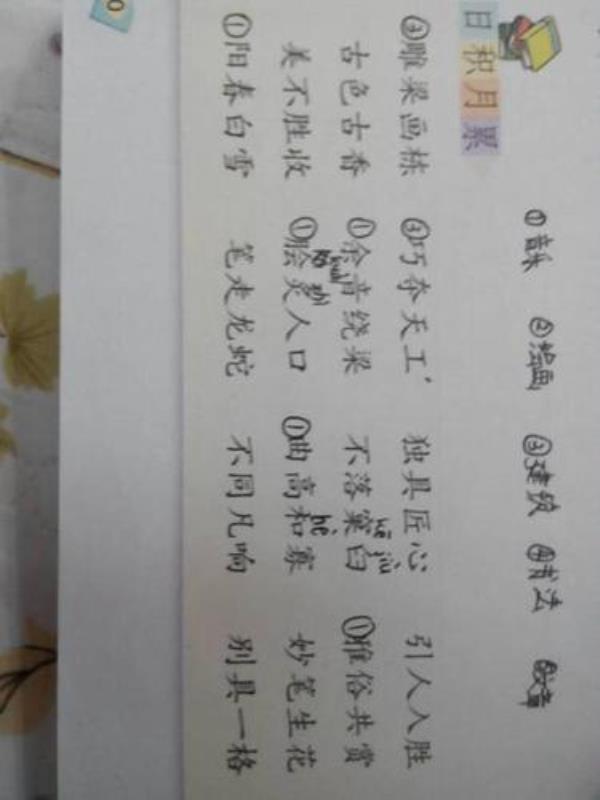 ①音乐 ②绘画 ③建筑 ④书法 文章
日积月累
③雕梁画栋 ③巧夺天工 独具匠心 引人入胜
kē jiù
古色古香 ①余音绕梁 不落窠臼 ①雅俗共赏
kuài zhì hè
美不胜收 ①脍炙人口 ①曲高和寡 妙笔生花
①阳春白雪 笔走龙蛇 不同凡响 别具一格